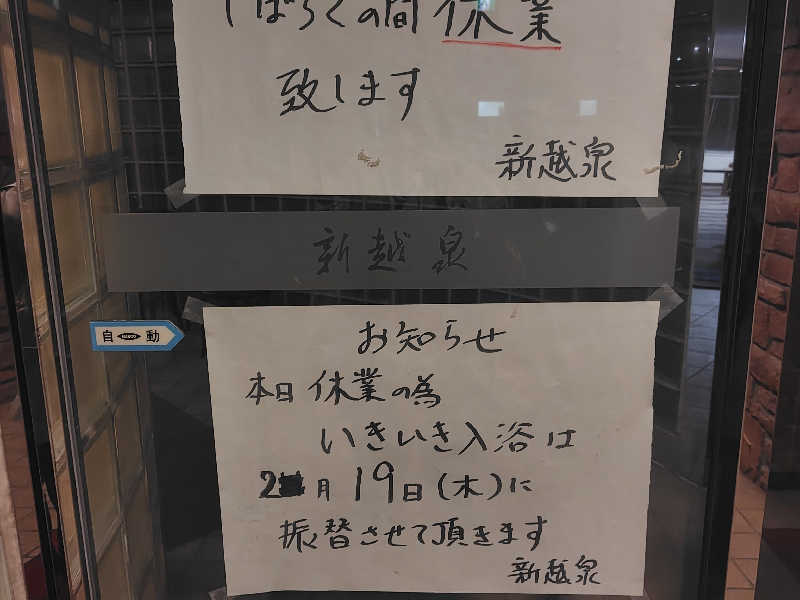 しばらくの間 休業
致します
新越泉
新越泉
自 動
お知らせ
本日 休業の為
いきいき入浴は
2月 19日(木)に
振替させて頂きます
新越泉